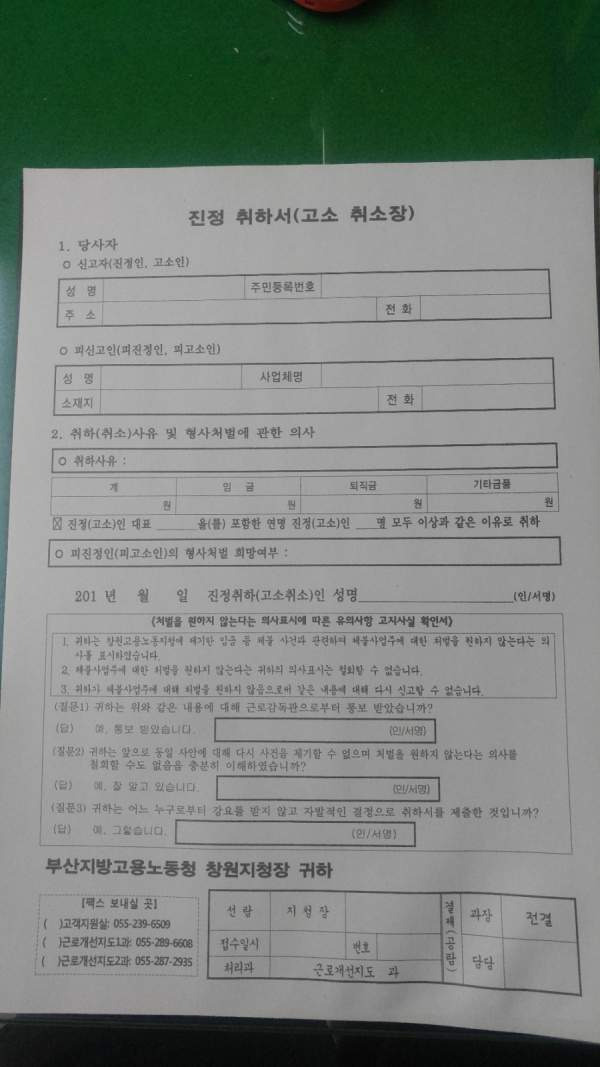 진정 취하서(고소 취소장)
1. 당사자
ㅇ 신고자(진정인, 고소인)
성 명 주민등록번호
주 소 전 화
ㅇ 피신고인(피진정인, 피고소인)
성 명 사업체명
소재지 전 화
2. 취하(취소)사유 및 형사처벌에 관한 의사
ㅇ 취하사유 :
계 임 금 퇴직금 기타금품
원 원 원 원
☒ 진정(고소)인 대표 ______을(를) 포함한 연명 진정(고소)인 ___명 모두 이상과 같은 이유로 취하
ㅇ 피진정인(피고소인)의 형사처벌 희망여부 :
201 년 월 일 진정취하(고소취소)인 성명____________________(인/서명)
《처벌을 원하지 않는다는 의사표시에 따른 유의사항 고지사실 확인서》
1. 귀하는 창원고용노동지청에 제기한 임금 등 체불 사건과 관련하여 체불사업주에 대한 처벌을 원하지 않는다는 의
사를 표시하였습니다.
2. 체불사업주에 대한 처벌을 원하지 않는다는 귀하의 의사표시는 철회할 수 없습니다.
3. 귀하가 체불사업주에 대해 처벌을 원하지 않음으로써 같은 내용에 대해 다시 신고할 수 없습니다.
(질문1) 귀하는 위와 같은 내용에 대해 근로감독관으로부터 통보 받았습니까?
(답) 예, 통보 받았습니다. (인/서명)
(질문2) 귀하는 앞으로 동일 사안에 대해 다시 사건을 제기할 수 없으며 처벌을 원하지 않는다는 의사를
철회할 수도 없음을 충분히 이해하였습니까?
(답) 예, 잘 알고 있습니다. (인/서명)
(질문3) 귀하는 어느 누구로부터 강요를 받지 않고 자발적인 결정으로 취하서를 제출한 것입니까?
(답) 예, 그렇습니다. (인/서명)
부산지방고용노동청 창원지청장 귀하
【팩스 보내실 곳】
( )고객지원실: 055-239-6509
( )근로개선지도1과: 055-289-6608
( )근로개선지도2과: 055-287-2935
선 람 지 청 장 결재(공람) 과장 전결
접수일시 번호 담당
처리과 근로개선지도 과